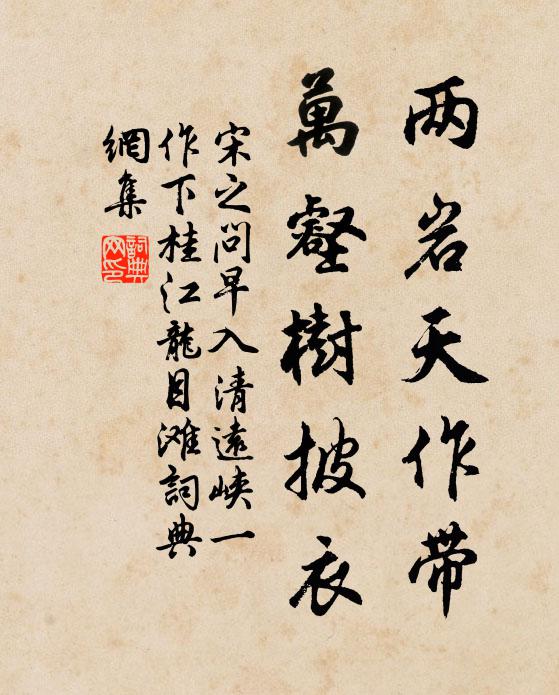 两岩天作带
萬壑樹披衣
宋之问早入清遠峡一
作下桂江龍目滩詞典
網集
詞典
网印